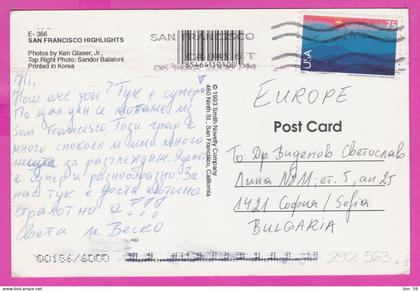 E- 366
SAN FRANCISCO HIGHLIGHTS
Photos by Ken Glaser, Jr.
Top Right Photo: Sandor Balatoni
Printed in Korea
SAN FRANCISCO
85464 10400
75
USA
© 1993 Smith Novelty Company
460 Ninth St., San Francisco, California
Hi,
How are you? Тук е супер.
По цял ден се мотаме из
San Francisco. Този град е
много спокоен и има много
неща за разглеждане.
е супер и разнообразно. За
нас тук е доста евтино
страхотно е!!!
Света и Веско
EUROPE
Post Card
То: Др Виденов Светослав
Лина №11, ет. 5, ап. 25
1421 София / Sofia
BULGARIA
00156/6000
292 563